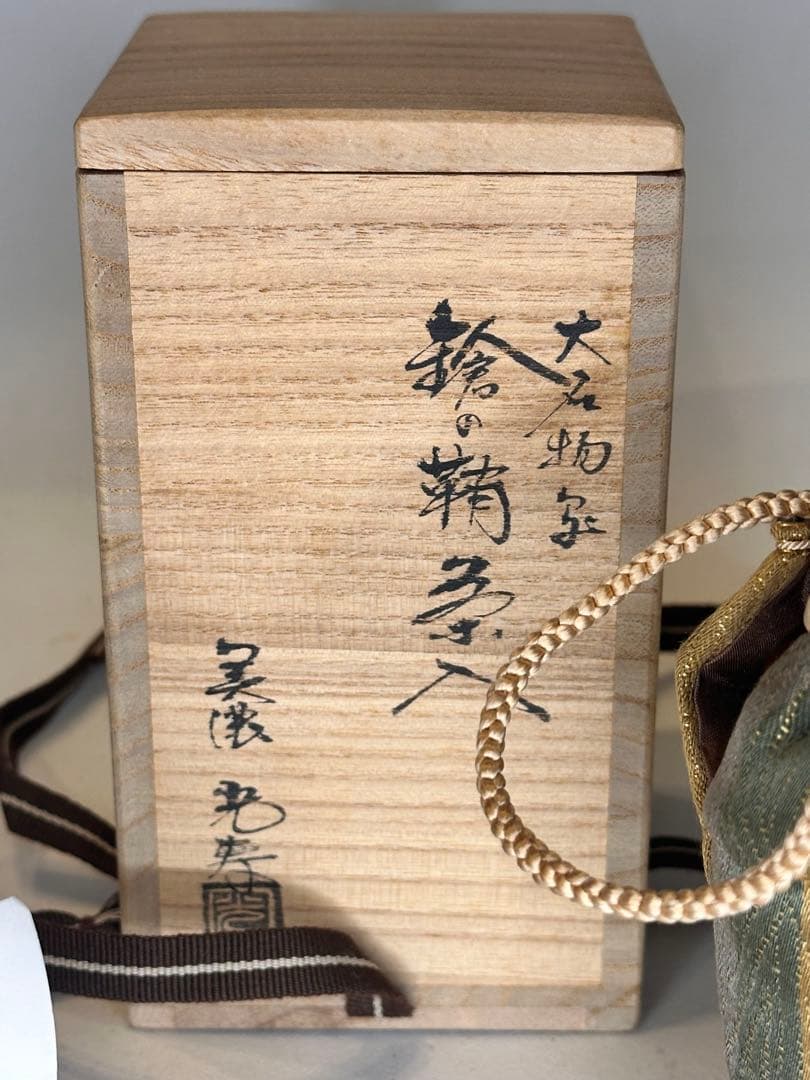 大名物写
鎗の鞘茶入
美濃 光寿